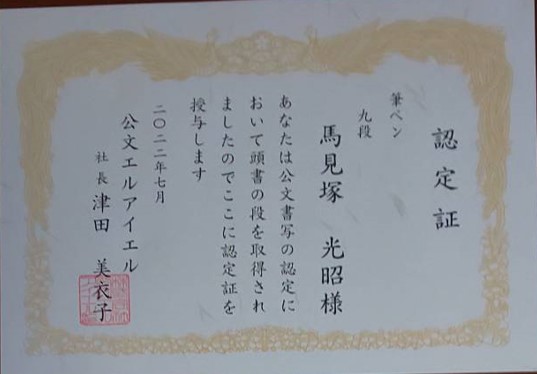 認定証
筆ペン
九段
馬見塚 光昭様
あなたは公文書写の認定に
おいて頭書の段を取得され
ましたのでここに認定証を
授与します
二〇二二年七月
公文エルアイエル
社長 津田 美衣子